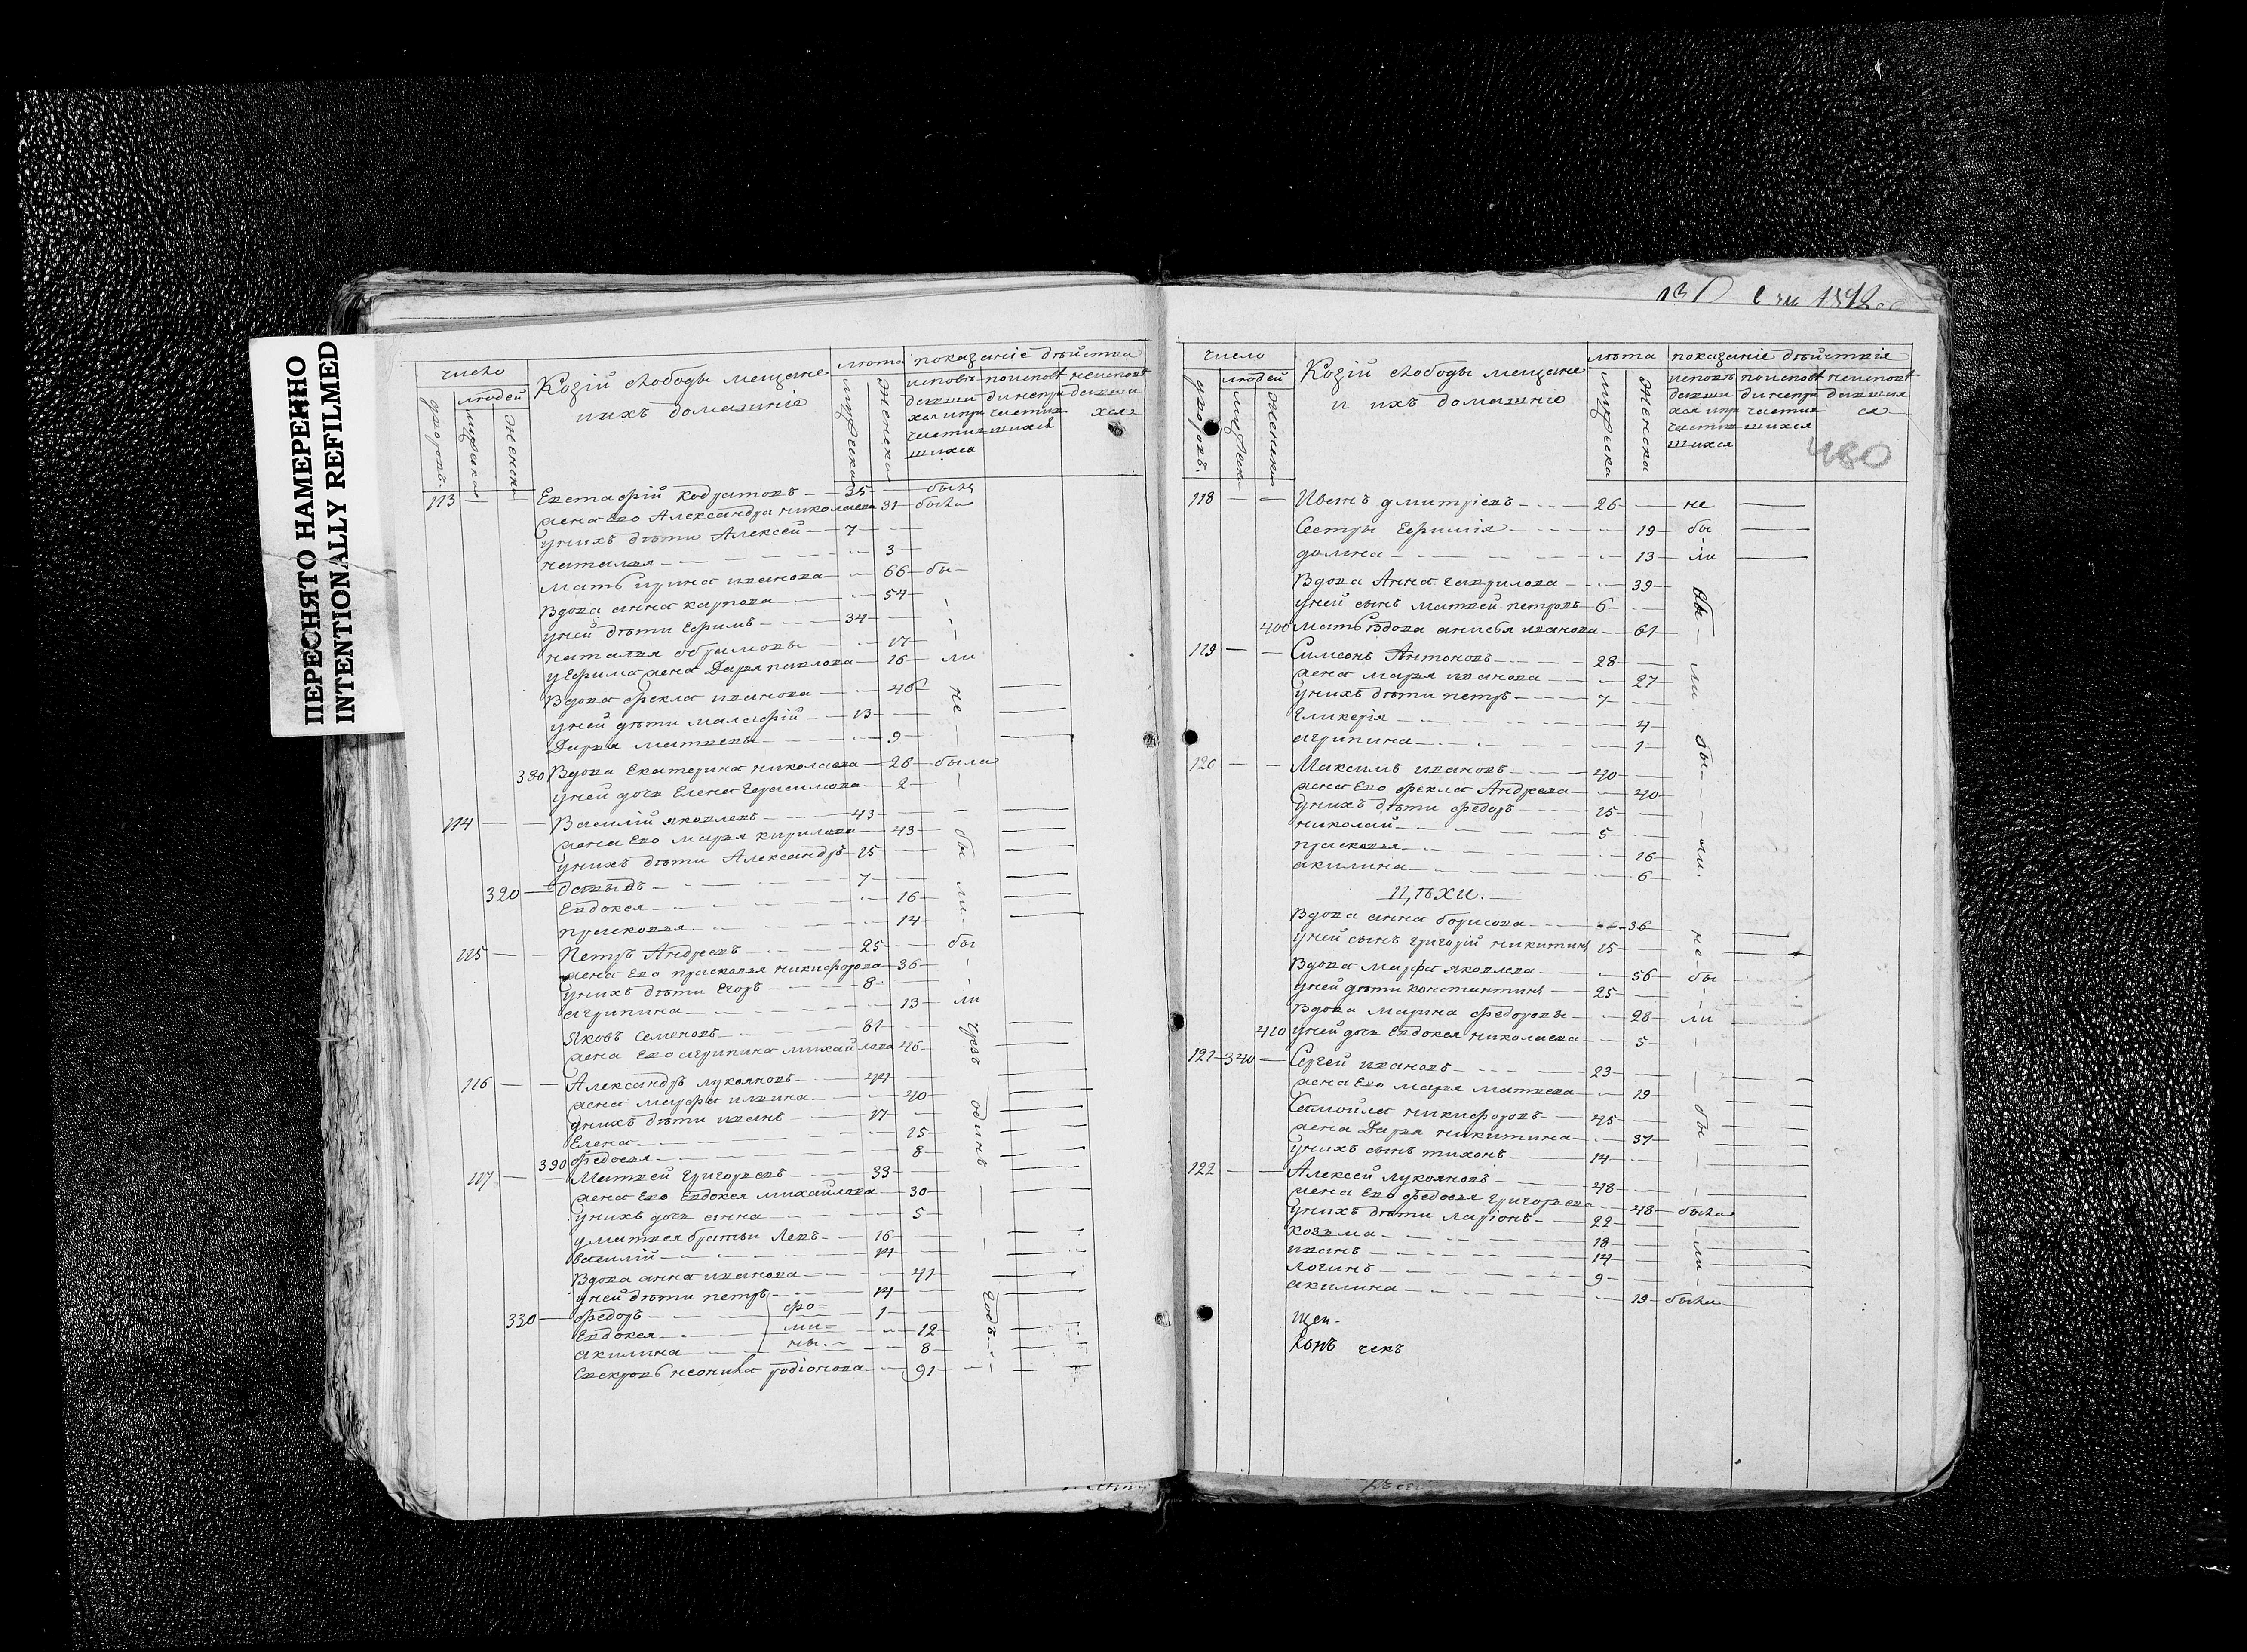 ПЕРЕСНЯТО НАМЕРЕННО
INTENTIONALLY REFILMED
число
людей
дворовъ.
мужеска
женска
Козій слободы мещане
ихъ домашніе
лѣта
мужеска
женска
показаніе дѣйства
исповѣ поисповѣ неисповѣ
давши динепри давши
хся и при частив хся
частив шихся
шихся
113 — — Евстафій кодратовъ — 35 — былъ
жена Ево Александра николаева 31 — была
унихъ дѣти Алексей — 7
наталья — 3
мать ирина иванова — 66 — бы
Вдова анна карпова — 54
уней дѣти Ефимъ — 34
наталья — 17
уЕфима жена Дарья павлова — 16 — ли
Вдова фекла иванова — 46 не
уней дѣти малафій — 13
Дарья матвевы — 9
380 Вдова Екатерина николаева — 26 — была
уней дочь Елена Герасимова — 2
114 — — Василій яковлевъ — 43
жена Ево марья кирилова — 43 бы
унихъ дѣти Александръ — 15
320 — давыдъ — 7
Евдокея — 16 ли
прасковья — 14
115 — — Петръ Андреевъ — 25 бы
жена Ево прасковья никифорова — 36
унихъ дѣти Егоръ — 8
агрипина — 13 — ли
Яковъ Семеновъ — 81 чрезъ
жена Ево агрипина михайлова 46
116 — — Александръ лукояновъ — 44
жена марфа ильина — 40 одинъ
унихъ дѣти иванъ — 17
Елена — 15
390 федосья — 8
117 — — Матвей Григорьевъ — 33
жена Ево Евдокея михайлова — 30
унихъ дочь анна — 5
уматвея братьи Левъ — 16
василій — 14
Вдова анна иванова — 41
уней дѣти петръ — 14 годъ
330 — федоръ — фо= 1
Евдокея — ми= 12
акилина — ны. 8
Свекровь неонила родіонова — 91
число
людей
дворовъ.
мужеска
женска
Козій слободы мещане
и ихъ домашніе
лѣта
мужеска
женска
показаніе дѣйствія
исповѣ поисповѣ неисповѣ
давши динепри давшия
хся и при частив ся
частив шихся
шихся
480
118 — — Иванъ дмитріевъ — 26 — не
Сестры Ефимія — 19 — бы
домна — 13 — ли
Вдова Анна гаврилова — 39
уней сынъ матвей петровъ — 6 бы
400 мать вдова анисья иванова — 61
119 — — Симеонъ Антоновъ — 28
жена марья иванова — 27 ли
унихъ дѣти петръ — 7
Гликерія — 4
агрипина — 1 бы
120 — — Максимъ ивановъ — 40
жена Ево фекла Андреева — 40
унихъ дѣти федоръ — 15
николай — 5
прасковья — 16 ли.
акилина — 6
Ц,ѣхи.
Вдова анна борисова — 36 не
уней сынъ григорій никитинъ 15
Вдова Марфа яковлева — 56 — бы
уней дѣти константинъ — 25
Вдова Марина федорова — 28 — ли
410 уней дочь Евдокея николаева — 5
121 — 340 — Сергей ивановъ — 23
жена Ево марья матвеева — 19
Самойла никифоровъ — 45 бы
жена Дарья никитина — 37
унихъ сынъ тихонъ — 14
122 — — Алексей лукояновъ — 48
жена Ево федосья григорьева — 48 — была
унихъ дѣти ларіонъ — 22
козьма — 18
иванъ — 14 ли
логинъ — 9
акилина — 19 — была